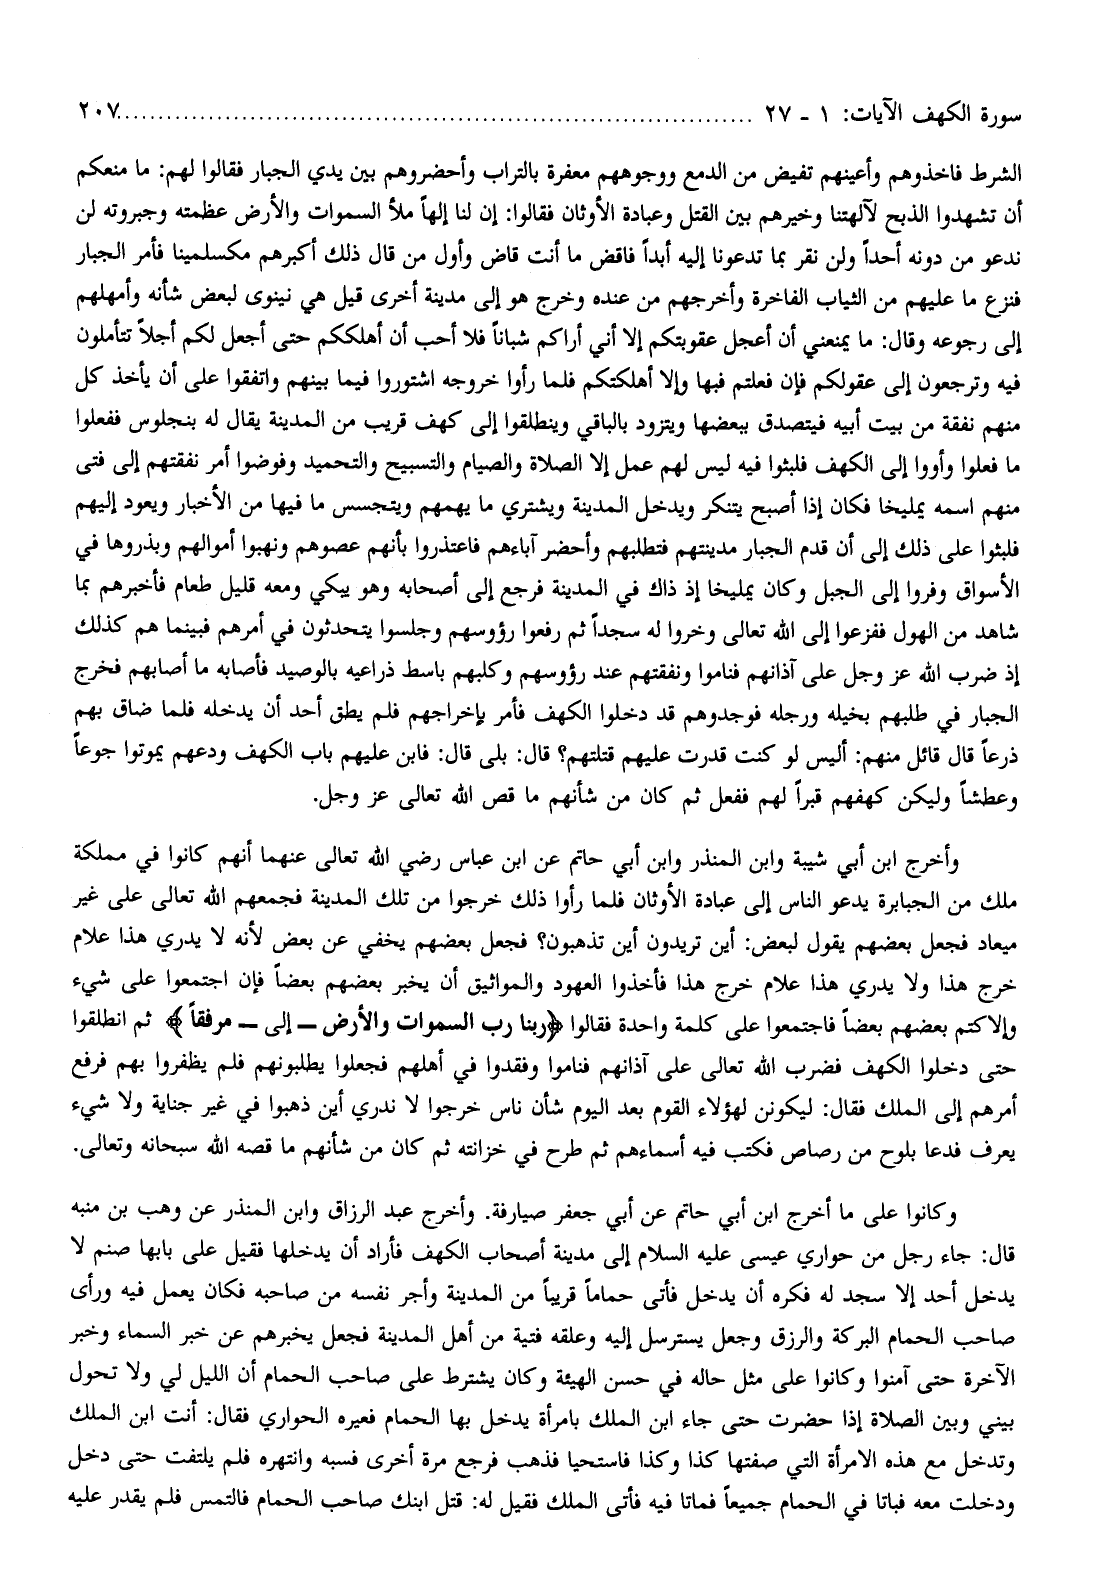 سورة الكهف الآيات: ١ - ٢٧ ........................................................................... ٢٠٧
الشرط فاخذوهم وأعينهم تفيض من الدمع ووجوههم معفرة بالتراب وأحضروهم بين يدي الجبار فقالوا لهم: ما منعكم
أن تشهدوا الذبح لآلهتنا وخيرهم بين القتل وعبادة الأوثان فقالوا: إن لنا إلهاً ملأ السموات والأرض عظمته وجبروته لن
ندعو من دونه أحداً ولن نقر بما تدعونا إليه أبداً فاقض ما أنت قاض وأول من قال ذلك أكبرهم مكسلمينا فأمر الجبار
فنزع ما عليهم من الثياب الفاخرة وأخرجهم من عنده وخرج هو إلى مدينة أخرى قيل هي نينوى لبعض شأنه وأمهلهم
إلى رجوعه وقال: ما يمنعني أن أعجل عقوبتكم إلا أني أراكم شباناً فلا أحب أن أهلككم حتى أجعل لكم أجلاً تتأملون
فيه وترجعون إلى عقولكم فإن فعلتم فبها وإلا أهلكتكم فلما رأوا خروجه اشتوروا فيما بينهم واتفقوا على أن يأخذ كل
منهم نفقة من بيت أبيه فيتصدق ببعضها ويتزود بالباقي وينطلقوا إلى كهف قريب من المدينة يقال له بنجلوس ففعلوا
ما فعلوا وأووا إلى الكهف فلبثوا فيه ليس لهم عمل إلا الصلاة والصيام والتسبيح والتحميد وفوضوا أمر نفقتهم إلى فتى
منهم اسمه يمليخا فكان إذا أصبح يتنكر ويدخل المدينة ويشتري ما يهمهم ويتجسس ما فيها من الأخبار ويعود إليهم
فلبثوا على ذلك إلى أن قدم الجبار مدينتهم فتطلبهم وأحضر آباءهم فاعتذروا بأنهم عصوهم ونهبوا أموالهم وبذروها في
الأسواق وفروا إلى الجبل وكان يمليخا إذ ذاك في المدينة فرجع إلى أصحابه وهو يبكي ومعه قليل طعام فأخبرهم بما
شاهد من الهول ففزعوا إلى الله تعالى وخروا له سجداً ثم رفعوا رؤوسهم وجلسوا يتحدثون في أمرهم فبينما هم كذلك
إذ ضرب الله عز وجل على آذانهم فناموا ونفقتهم عند رؤوسهم وكلبهم باسط ذراعيه بالوصيد فأصابه ما أصابهم فخرج
الجبار في طلبهم بخيله ورجله فوجدوهم قد دخلوا الكهف فأمر بإخراجهم فلم يطق أحد أن يدخله فلما ضاق بهم
ذرعاً قال قائل منهم: أليس لو كنت قدرت عليهم قتلتهم؟ قال: بلى قال: فابن عليهم باب الكهف ودعهم يموتوا جوعاً
وعطشاً وليكن كهفهم قبراً لهم ففعل ثم كان من شأنهم ما قص الله تعالى عز وجل.
وأخرج ابن أبي شيبة وابن المنذر وابن أبي حاتم عن ابن عباس رضي الله تعالى عنهما أنهم كانوا في مملكة
ملك من الجبابرة يدعو الناس إلى عبادة الأوثان فلما رأوا ذلك خرجوا من تلك المدينة فجمعهم الله تعالى على غير
ميعاد فجعل بعضهم يقول لبعض: أين تريدون أين تذهبون؟ فجعل بعضهم يخفي عن بعض لأنه لا يدري هذا علام
خرج هذا ولا يدري هذا علام خرج هذا فأخذوا العهود والمواثيق أن يخبر بعضهم بعضاً فإن اجتمعوا على شيء
وإلاكتم بعضهم بعضاً فاجتمعوا على كلمة واحدة فقالوا ﴿ربنا رب السموات والأرض – إلى – مرفقاً﴾ ثم انطلقوا
حتى دخلوا الكهف فضرب الله تعالى على آذانهم فناموا وفقدوا في أهلهم فجعلوا يطلبونهم فلم يظفروا بهم فرفع
أمرهم إلى الملك فقال: ليكونن لهؤلاء القوم بعد اليوم شأن ناس خرجوا لا ندري أين ذهبوا في غير جناية ولا شيء
يعرف فدعا بلوح من رصاص فكتب فيه أسماءهم ثم طرح في خزانته ثم كان من شأنهم ما قصه الله سبحانه وتعالى.
وكانوا على ما أخرج ابن أبي حاتم عن أبي جعفر صيارفة. وأخرج عبد الرزاق وابن المنذر عن وهب بن منبه
قال: جاء رجل من حواري عيسى عليه السلام إلى مدينة أصحاب الكهف فأراد أن يدخلها فقيل على بابها صنم لا
يدخل أحد إلا سجد له فكره أن يدخل فأتى حماماً قريباً من المدينة وأجر نفسه من صاحبه فكان يعمل فيه ورأى
صاحب الحمام البركة والرزق وجعل يسترسل إليه وعلقه فتية من أهل المدينة فجعل يخبرهم عن خبر السماء وخبر
الآخرة حتى آمنوا وكانوا على مثل حاله في حسن الهيئة وكان يشترط على صاحب الحمام أن الليل لي ولا تحول
بيني وبين الصلاة إذا حضرت حتى جاء ابن الملك بامرأة يدخل بها الحمام فعيره الحواري فقال: أنت ابن الملك
وتدخل مع هذه الامرأة التي صفتها كذا وكذا فاستحيا فذهب فرجع مرة أخرى فسبه وانتهره فلم يلتفت حتى دخل
ودخلت معه فباتا في الحمام جميعاً فماتا فيه فأتى الملك فقيل له: قتل ابنك صاحب الحمام فالتمس فلم يقدر عليه